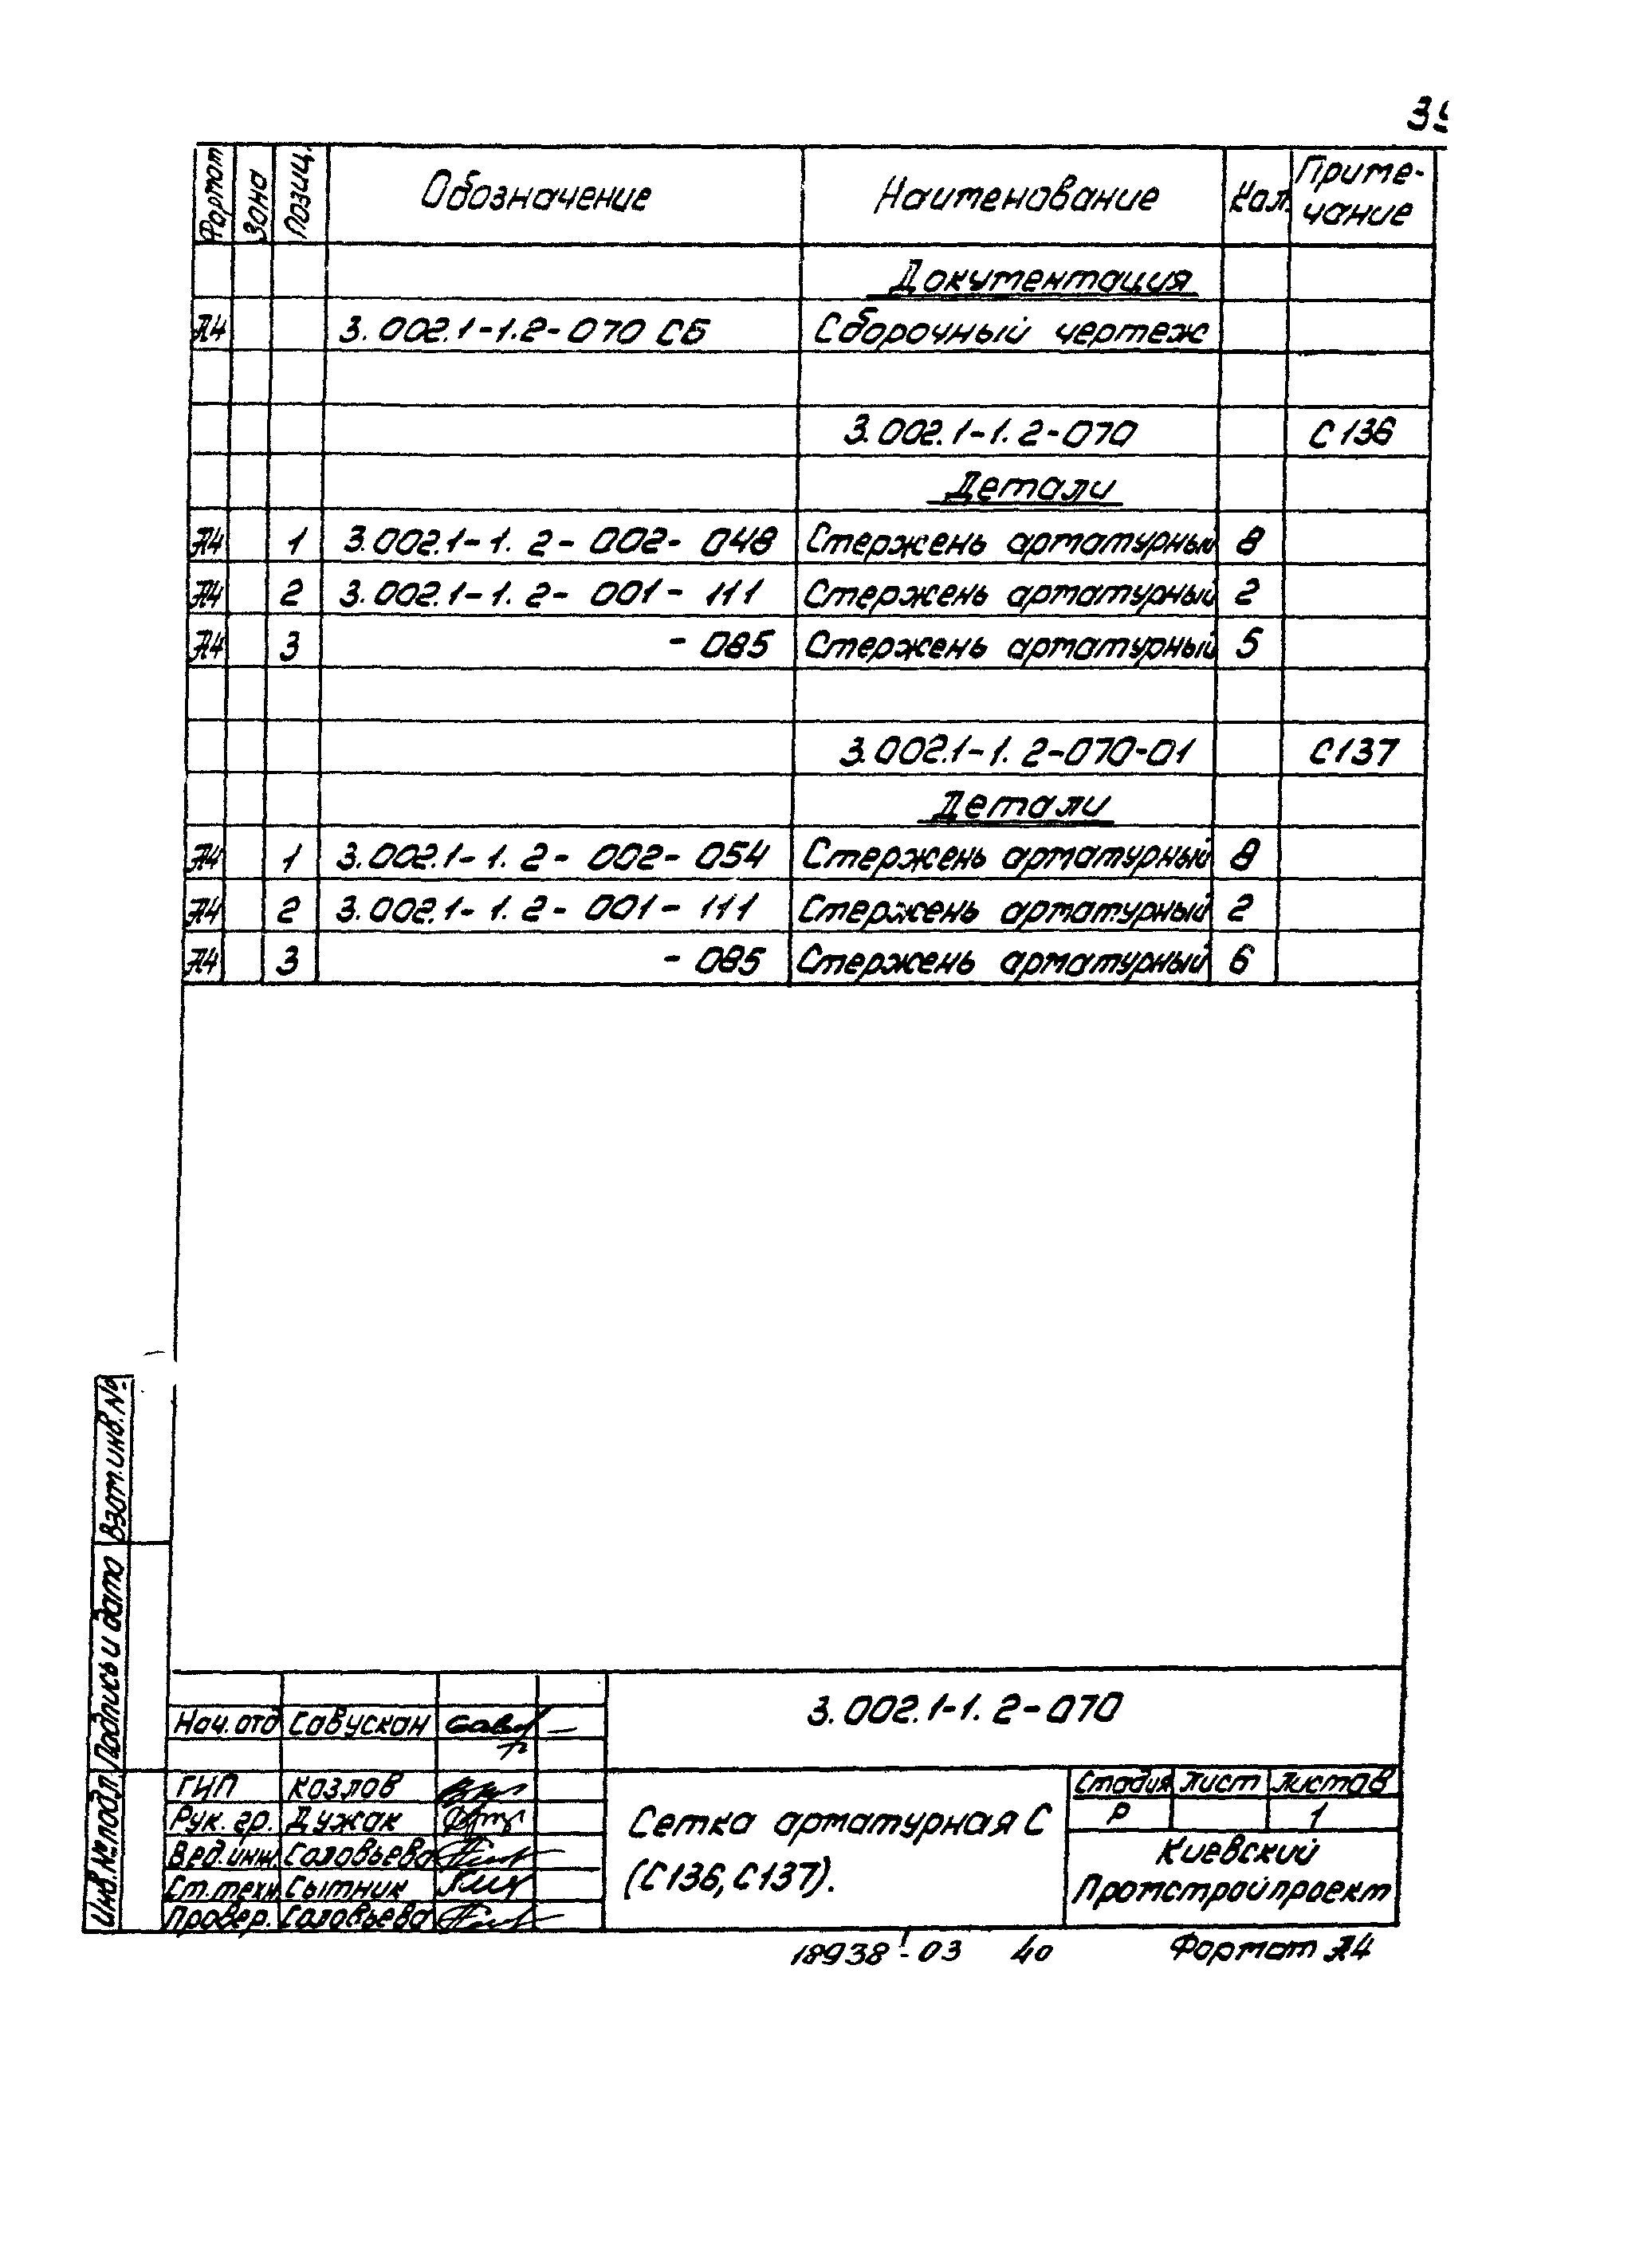 Формат Зона Позиц. Обозначение Наименование Кол. Приме-
чание
Документация
А4 3.002.1-1.2-070 СБ Сборочный чертеж
3.002.1-1.2-070 С136
Детали
А4 1 3.002.1-1.2-002-048 Стержень арматурный 8
А4 2 3.002.1-1.2-001-111 Стержень арматурный 2
А4 3 -085 Стержень арматурный 5
3.002.1-1.2-070-01 С137
Детали
А4 1 3.002.1-1.2-002-054 Стержень арматурный 8
А4 2 3.002.1-1.2-001-111 Стержень арматурный 2
А4 3 -085 Стержень арматурный 6
Взам.инв.№
Подпись и дата
Инв.№подл
3.002.1-1.2-070
Нач.отд Савускан
ГИП Козлов
Рук.гр. Дужак
Вед.инж. Соловьева
Ст.техн. Сытник
Провер. Соловьева
Сетка арматурная С
(С136, С137).
Стадия Лист Листов
Р 1
Киевский
Промстройпроект
18938-03 40 Формат А4